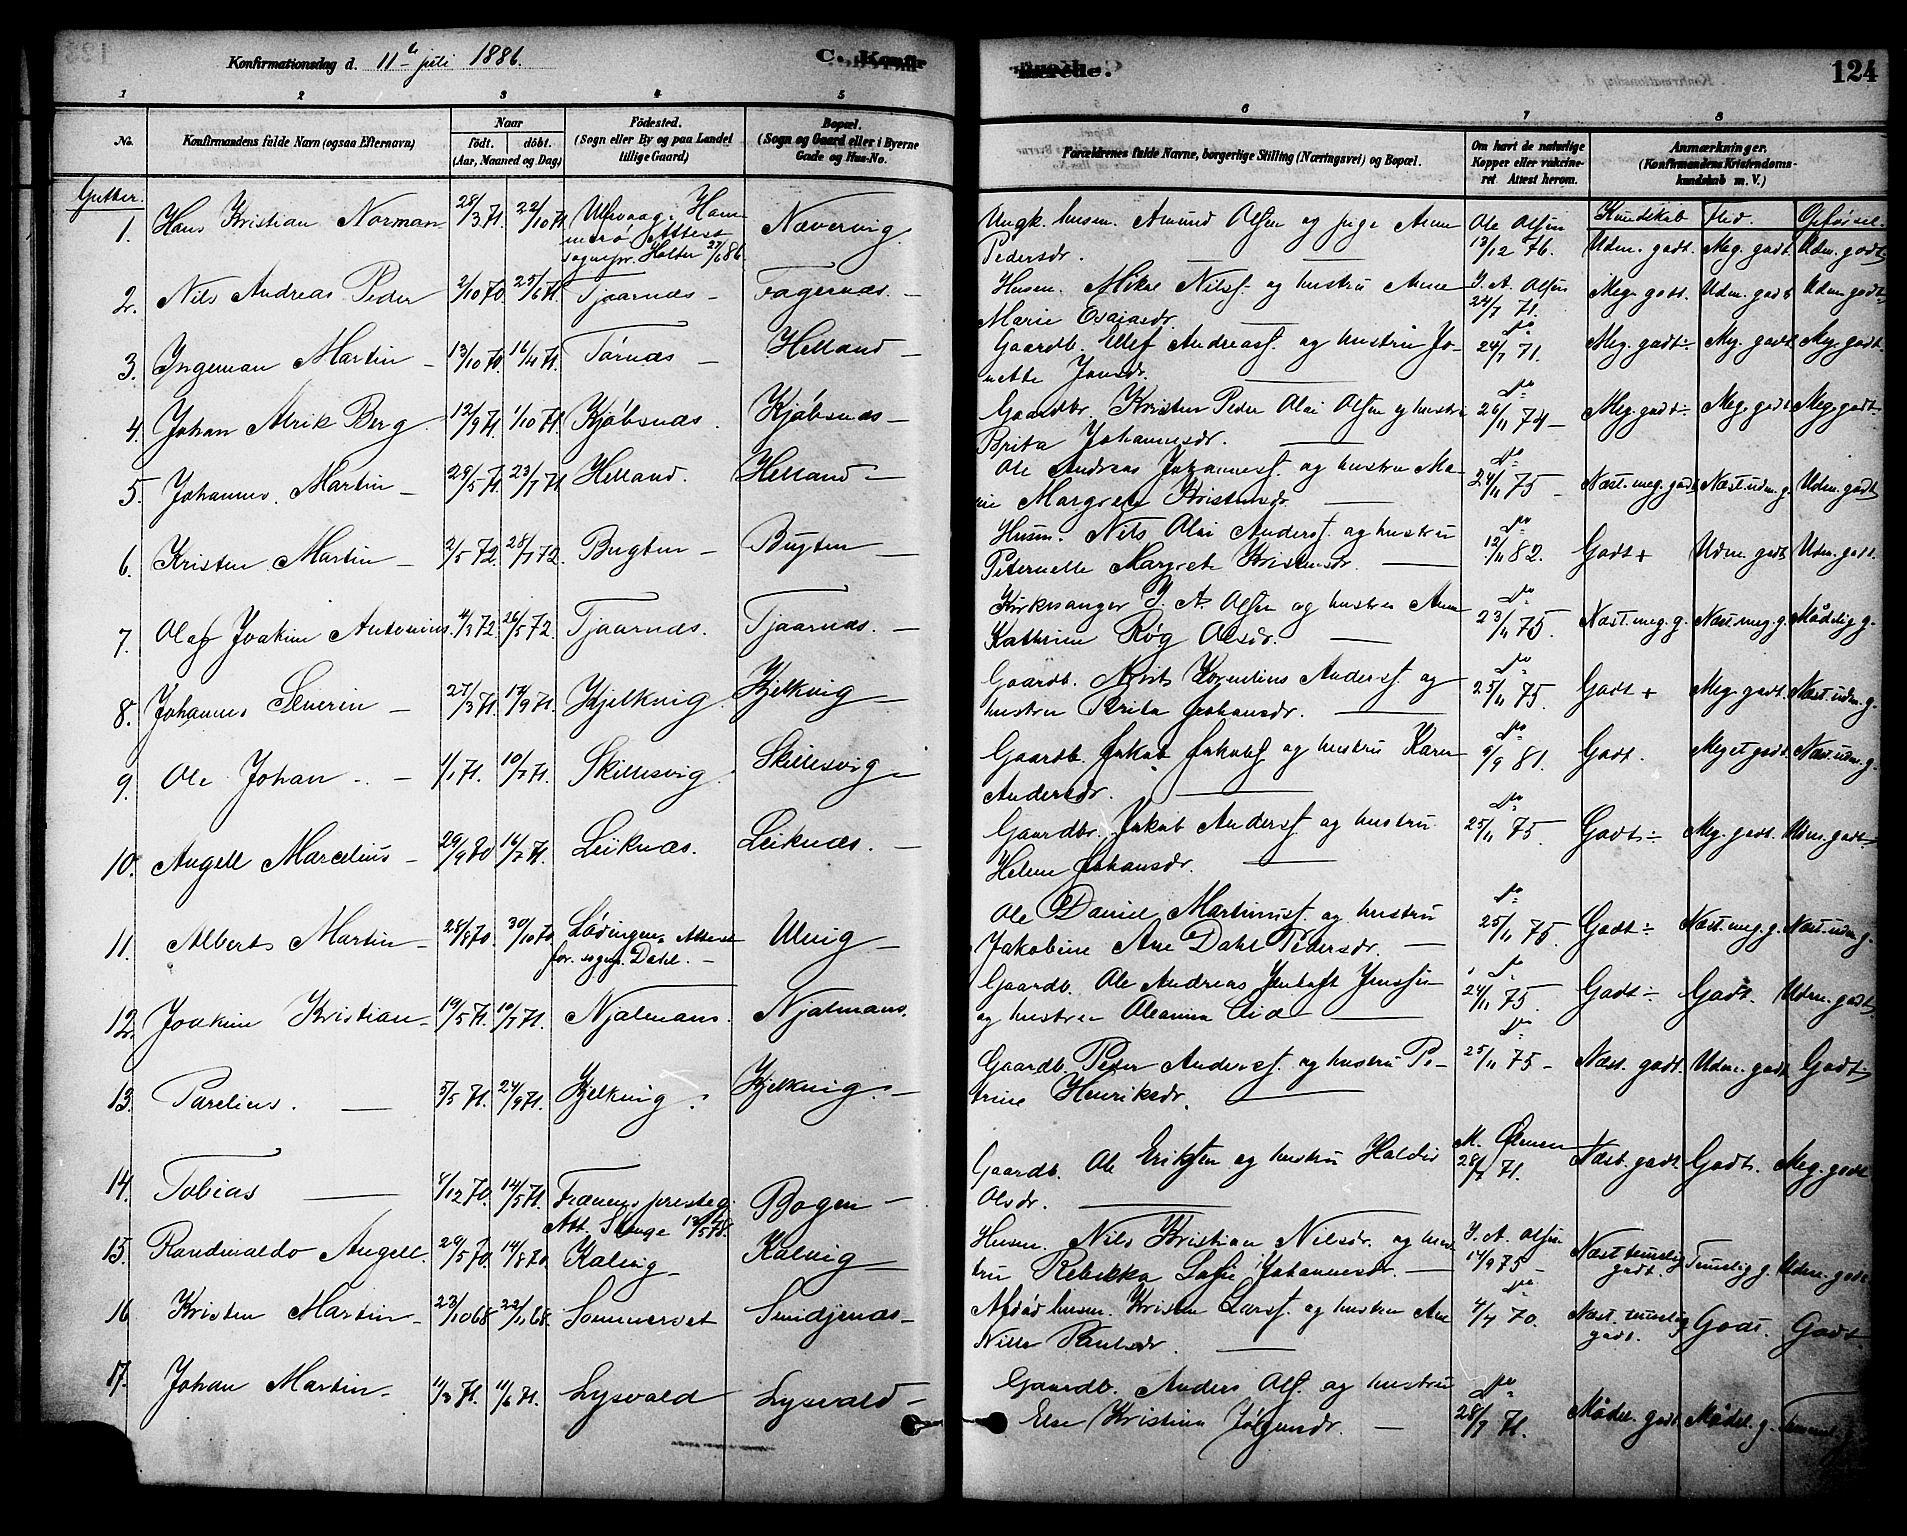 Konfirmationsdag d. 11te juli 1886.
C. Konfir
merede.
124
1 2 3 4 5 6 7 8
No.
Konfirmandens fulde Navn (ogsaa Efternavn)
Naar
født. döbt.
(Aar, Maaned og Dag)
Födested.
(Sogn eller By og paa Landet
tillige Gaard)
Bopæl.
(Sogn og Gaard eller i Byerne
Gade og Hus-No.
Forældrenes fulde Navne, borgerlige Stilling (Næringsvei) og Bopæl.
Om havt de naturlige
Kopper eller vakcine-
ret. Attest herom.
Anmærkninger.
(Konfirmandens Kristendoms-
kundskab m. V.)
Gutter.
Kundskab Flid. Opførsel.
1. Hans Kristian Norman 28/3 71 22/10 71 Ulfsvaag. Ham
merö Attest
sognepr. Holter 27/6 86 Nævervig.
Ungk. husm. Amund Olsen og pige Anne
Pedersdr.
Ole Olsen
13/12 76. Udm. godt. Meg. godt. Udm. godt
2. Nils Andreas Peder 2/10 70. 25/6 71. Tjaarnæs - Fagernæs. -
Husm. Mikal Nilss. og hustru Anne
Marie Esaiasdr.
J. A. Olsen
24/7 71. Meg. godt. Udm. godt Udm. godt
3. Ingeman Martin - 13/10 71. 16/4 71. Tørnæs - Helland -
Gaardb. Ellef Andreass. og hustru Jo-
nette Jonsdr.
do
24/7 71. Meg. godt÷ Meg. godt Meg. godt.
4. Johan Alrik Berg 12/9 71. 1/10 71. Kjøbsnæs. Kjøbsnæs -
Gaardbr. Kristen Peder Olai Olsen og hustru
Brita Johannesdr.
do
26/11 74 - Meg. godt÷ Meg. godt Meg. godt
5. Johannes Martin - 29/5 71. 23/7 71 Helland. Helland -
Ole Andreas Johanness. og hustru Ma-
rie Margrete Kristensdr.
do
24/11 75 - Næst. meg. godt Næst. udm. g. Udm. godt
6. Kristen Martin - 2/5 72. 28/7 72. Bugten - Bugten -
Husm. Nils Olai Anderss. og hustru
Peternelle Margrete Kristensdr.
do
12/11 82. Godt + Udm. godt Udm. godt.
7. Olaf Joakim Antonius. 4/3 72 26/5 72. Tjaarnæs. Tjaarnæs. -
Kirkesanger J. A. Olsen og hustru Anne
Kathrine Røg Olsdr.
do
23/11 75. Næst. meg. g. Næst. meg. g. Mådelig g.
8. Johannes Severin - 27/3 71. 17/9 71. Kjelkvig. Kjelkvig -
Gaardb. Kornelius Anderss. og
hustru Brita Johansdr.
do
25/11 75. Godt + Meg. godt. Næst. udm. g.
9. Ole Johan - 1/1 71. 10/7 71. Skillesvig. Skillesvig -
Gaardb. Jakob Jakobs. og hustru Karen
Andersdr.
do
9/9 81. Godt. Meget godt. Næst. udm. g.
10. Angell Marcelius - 29/9 70 16/7 71. Leiknæs. Leiknæs. -
Gaardbr. Jakob Anderss. og hustru
Helene Johansdr.
do
25/11 75. Godt÷ Meg. godt. Udm. godt
11. Albert Martin - 28/8 70. 30/10 70 Lødingen, Attest
for. sogn. Dahl. - Ulvig -
Ole Daniel Martinuss. og hustru
Jakobine Ane Dahl Pedersdr. -
do
25/11 75. Godt÷ Næst. meg. g. Næst. udm. g.
12. Joakim Kristian - 19/5 71. 10/7 71. Njalmans. Njalmans.
Gaardb. Ole Andreas Jentoft Jenssen
og hustru Oleanna Eid -
do
24/11 75. Godt÷ Godt. Udm. godt
13. Parelius. - 5/5 71. 24/9 71. Kjelkvig. Kjelkvig. -
Gaardb. Peder Anderss. og hustru Pe-
trine Henriksdr.
do
25/11 75 - Næst. godt. Udm. godt Godt
14. Tobias - 4/12 70. 14/5 71. Tranøy prestegj.
Att. Stenge 12/5 78. Bogen -
Gaardb. Ole Eriksen og hustru Haldis
Olsdr.
M. Olensen
28/7 71. Næst. godt Godt. Meg. godt
15. Randivaldo Angell. 29/5 70. 14/8 70. Kalvig - Kalvig -
Husm. Nils Kristian Nilsdr. og hus-
tru Rebekka Sofie Johannesdr. -
J. A. Olsen
14/9 75 - Næst temelig
godt. Temelig g. Udm. godt
16 Kristen Martin - 23/10 68 22/11 68. Sommerset Smidjenæs -
Afdöd husm. Kristen Larss. og hustru Ane
Nille Paulsdr.
do
4/7 70. Næst. temelig
godt. Godt. Godt
17. Johan Martin - 11/3 71. 11/6 71. Lysvald Lysvald -
Gaardb. Anders Ols. og hustru
Else Kristina Jørgensdr. -
do
28/7 71. Mådel. godt. Mådel. g. Temmel. g.